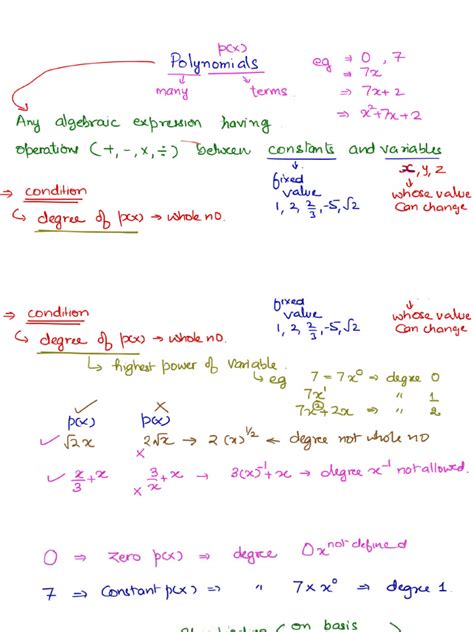 p(x)
Polynomials
many terms
eg ⇒ 0, 7
⇒ 7x
⇒ 7x+2
⇒ x²+7x+2
Any algebraic expression having
operations (+, -, x, ÷) between constants and variables
fixed value
1, 2, 2/3, -5, √2
x, y, z
whose value can change
⇒ condition
↳ degree of p(x) → whole no.
fixed value
1, 2, 2/3, -5, √2
whose value can change
⇒ condition
↳ degree of p(x) → whole no.
↳ highest power of variable.
↳ eg 7 = 7x⁰ → degree 0
7x¹ " 1
7x²+2x → " 2
✓ ×
p(x) p(x)
✓ √2x × 2√x → 2(x)^1/2 ← degree not whole no
✓ x/3 + x × 3/x + x → 3(x)⁻¹+x → degree x⁻¹ not allowed.
0 ⇒ zero p(x) ⇒ degree 0x^not defined
7 ⇒ Constant p(x) ⇒ " 7×x⁰ ⇒ degree 1.
(on basis